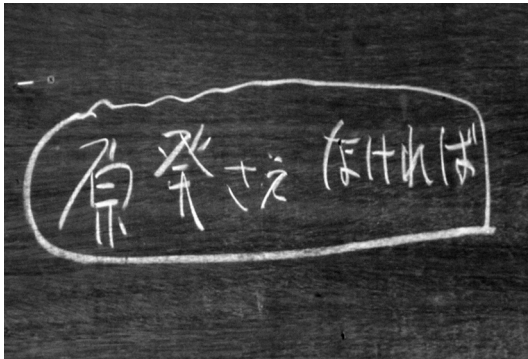 原発さえ なければ